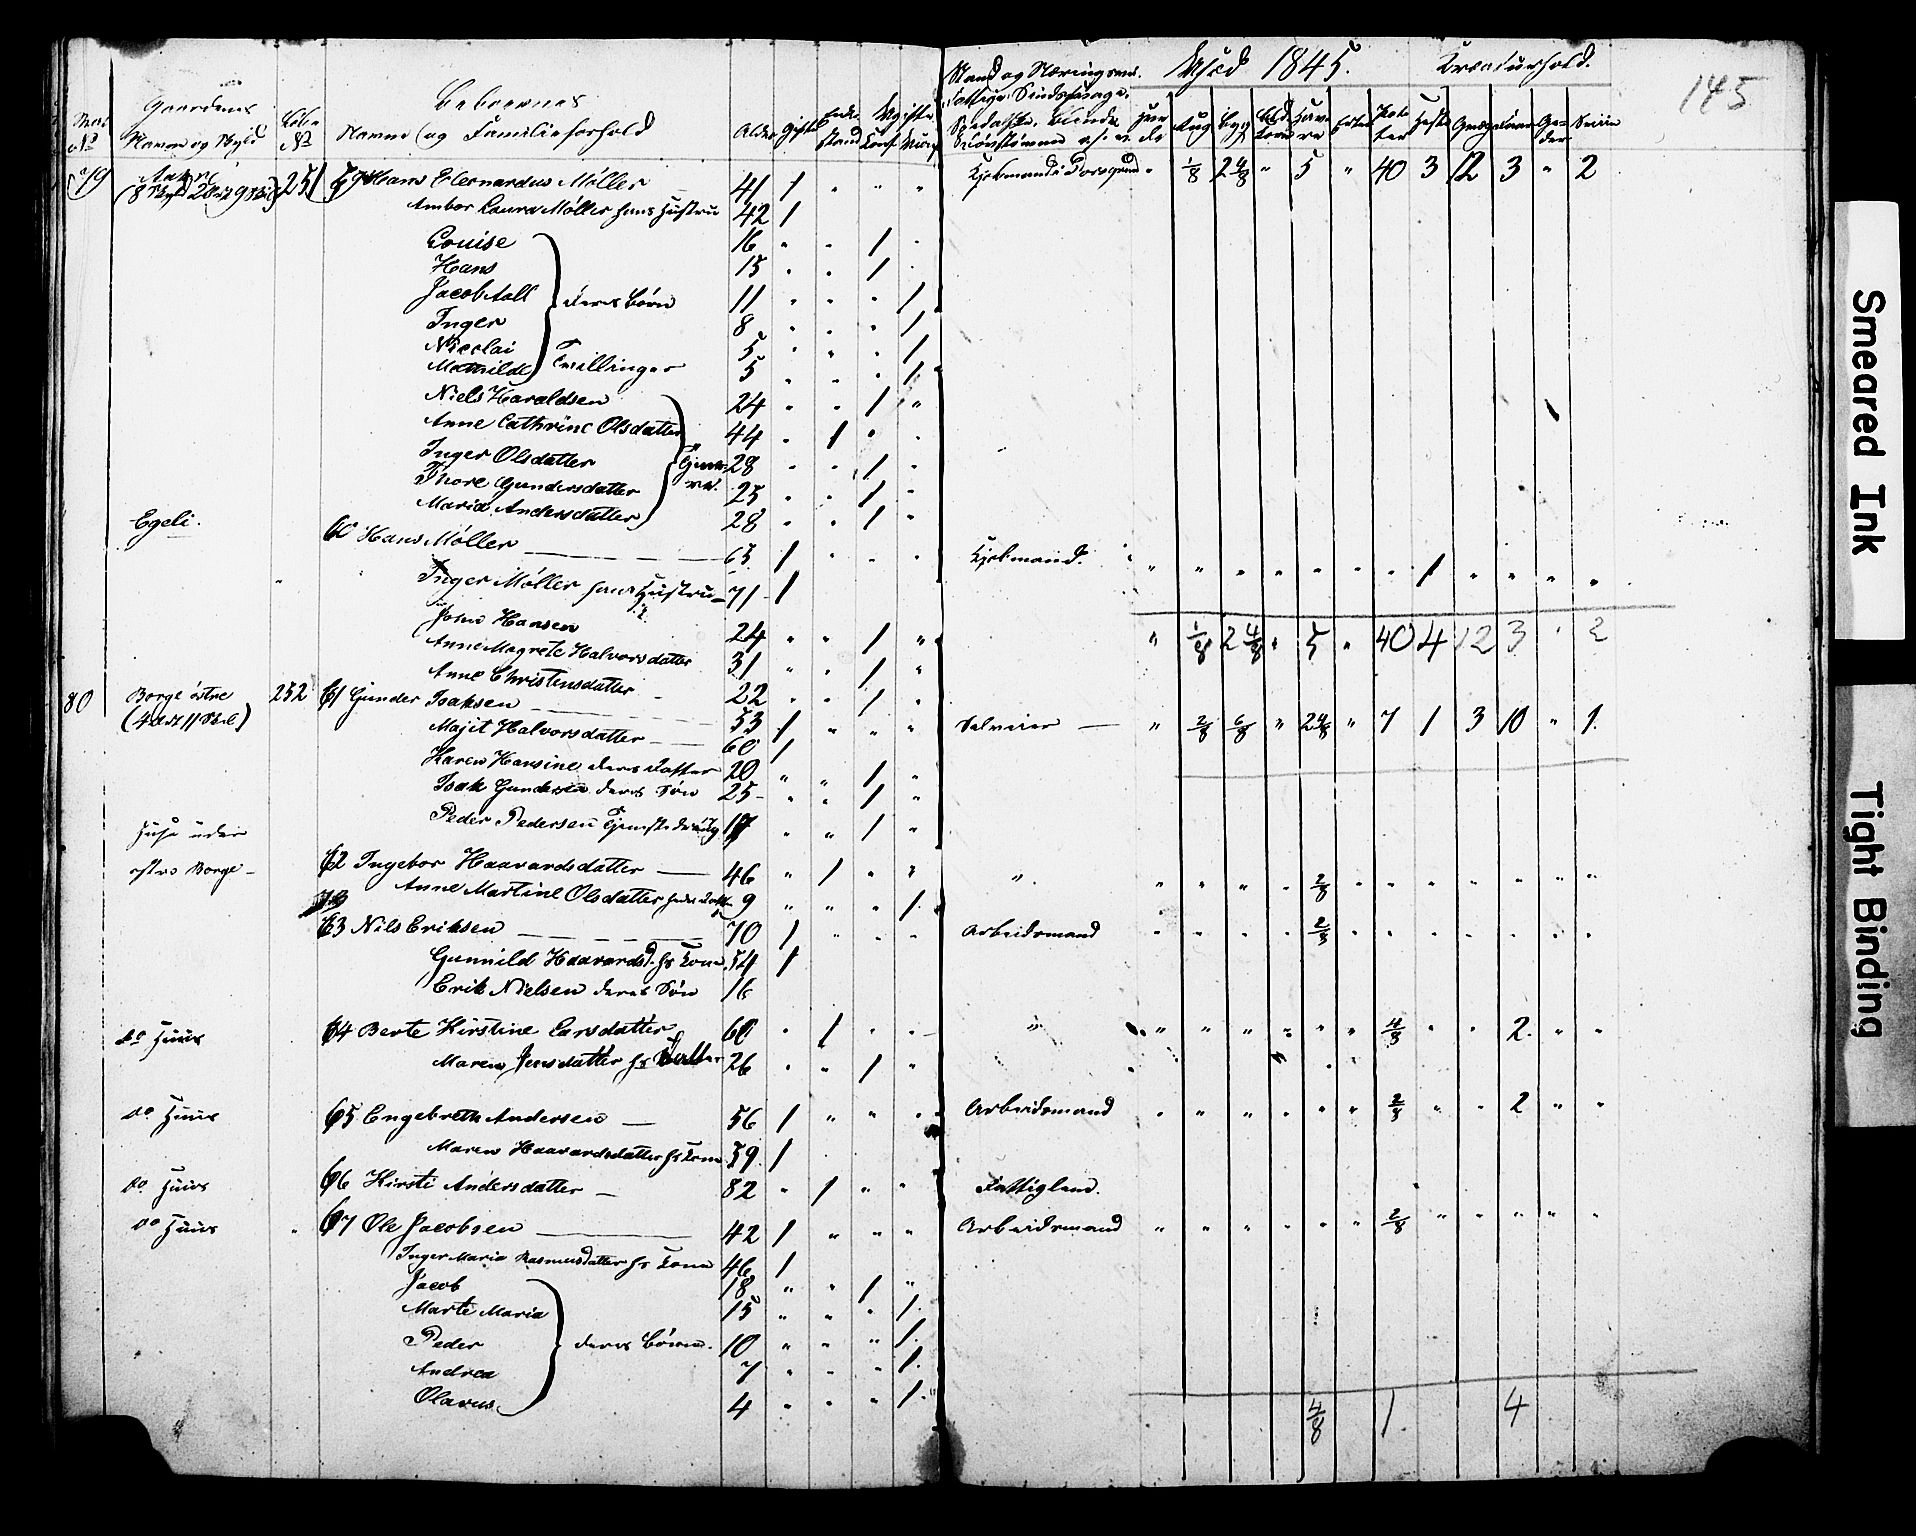 Udsæd 1845. Kreaturhold.
145
Gaardens
Beboernes
Navn og Skyld
Navne og Familieforhold
Alder Gifte
79 251 59 Hans Hernardus Møller 41 1 " " " Kjøbmand i Porsgrund " 1/8 2 4/8 " 5 " 40 3 12 3 " 2
Hans Hustru 42 1
Louise 16 " " 1 "
Hans 15 " " 1 "
Jacob Aall 11 " " " 1
deres Børn
Inger 8 " " " 1
Nicolai 5 " " " 1
Mathilde 5 " " " 1
Tvillinger
Niels Haraldsen 24 " " 1 "
Anne Cathrine Olsdatter 44 " 1 " "
Inger Olsdatter 28 " " 1 "
Thore Gundersdatter 25 " " 1 "
Maria Andersdatter 28 " " 1 "
Egeli. 60 Hans Møller 65 1 " " " Kjøbmand. " " " " " " " 1 " " " "
Inger Møller hans Hustru 71 1
John Hansen 24 " " 1 "
" 1/8 2 4/8 " 5 " 40 4 12 3 " 2
Anne Magrete Halvorsdatter 31 " " 1 "
Anne Christensdatter 22 " " 1 "
80 Borge østre 252 61 Gunder Isaksen 53 1 " " " Selveier " 2/8 6/8 " 2 4/8 " 7 1 3 10 " 1
Majit Halvorsdatter 60 1
Karen Hansine deres Datter 20 " " 1 "
Isak Gundersen deres Søn 25 " " 1 "
Peder Pedersen Tjenestedreng 17 " " 1 "
Huse under
østre Borge 62 Ingebor Haavardsdatter 46 " 1 " " " " " " " 2/8 " " " " " " "
Anne Martine Olsdatter 9 " " " 1
63 Nils Eriksen 70 1 " " " Arbeidsmand " " " " 2/8 " " " " " " "
Gunnild Haavardsd. hs Kone 54 1
Erik Nielsen deres Søn 16
do Huus 64 Berte Kirstine Larsdatter 60 " 1 " " " " " " " " " 4/8 " " 2 " "
Maren Jensdatter hs Datter 26 " " 1 "
do Huus 65 Engebreth Andersen 56 1 " " " Arbeidsmand " " " " " " 2/8 " " 2 " "
Maren Haavardsdatter hs Kone 59 1
do Huus 66 Kirsti Andersdatter 82 " 1 " " Fattiglem.
do Huus 67 Ole Jacobsen 42 1 " " " Arbeidsmand " " " " " " 2/8 " " " " "
Inger Maria Rasmusdatter hs Kone 46 1
Jacob 18 " " 1 "
Marte Maria 15 " " " 1
Peder 10 " " " 1
deres Børn.
Andrea 7 " " " 1
Olavus 4 " " " 1
4/8 1 4
Smeared Ink
Tight Binding